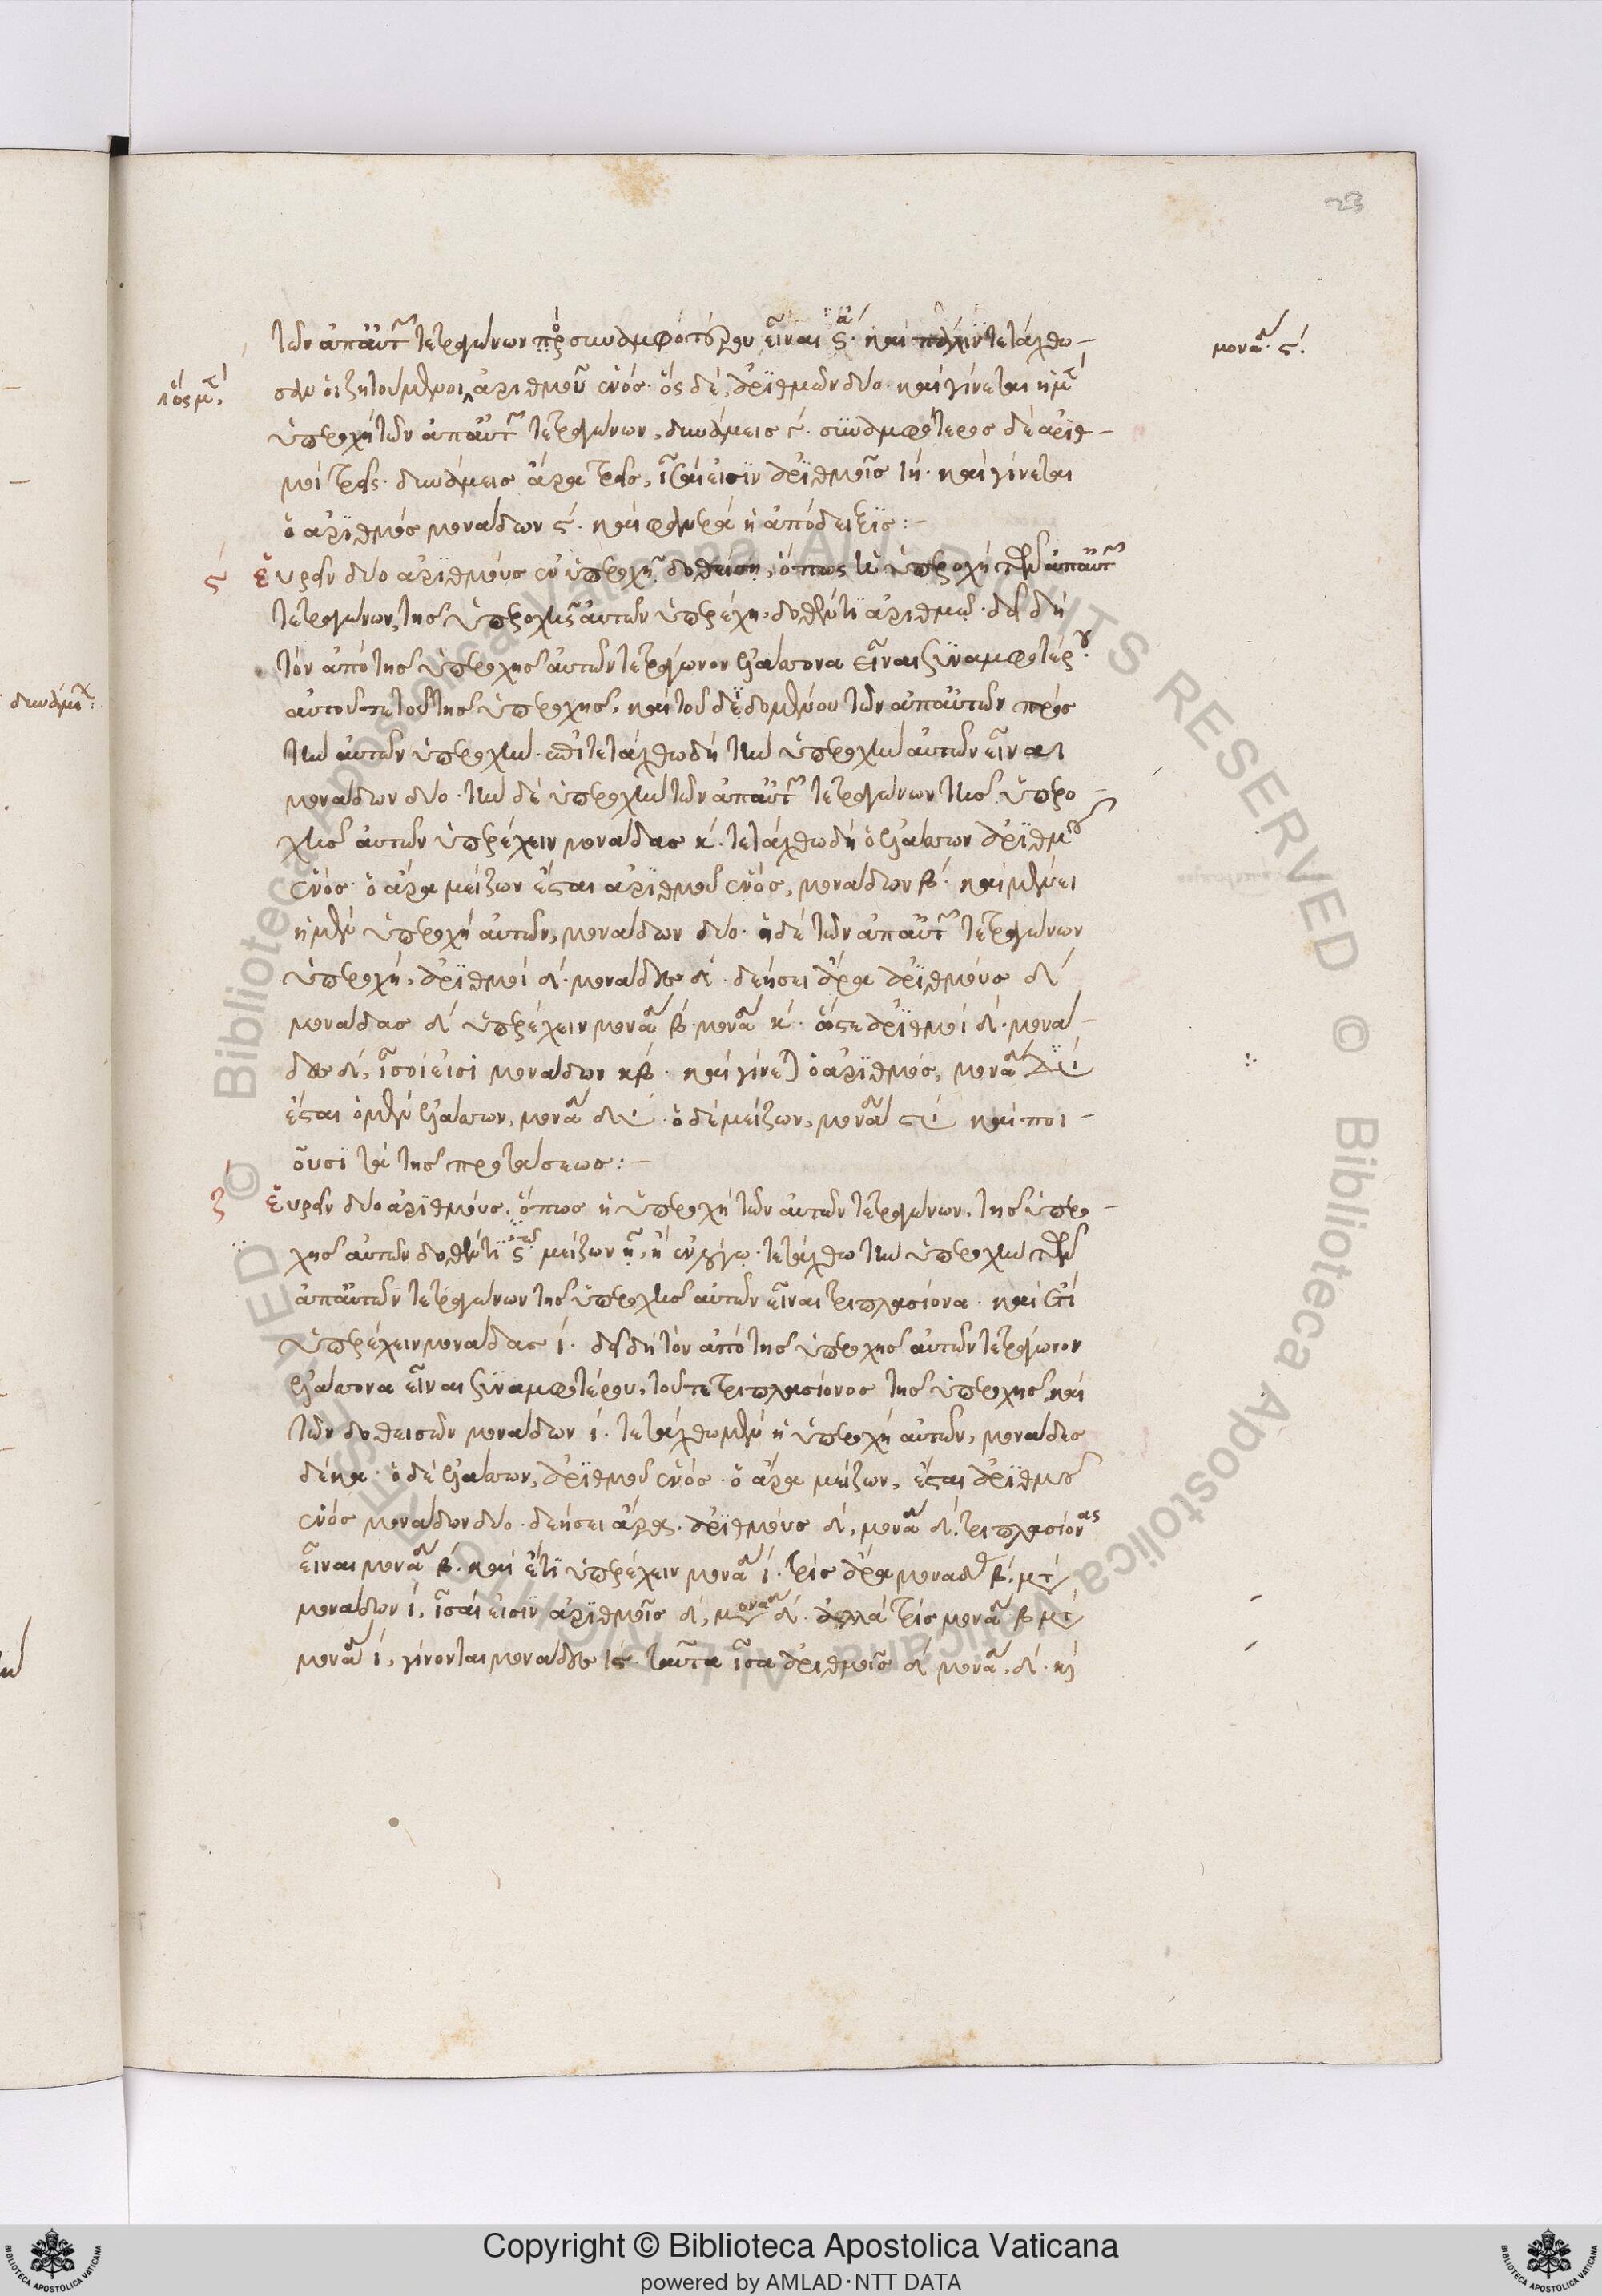 23
τῶν ἀπ' αὐτ τετραγώνων πρὸς συναμφότερον εἶναι ϛ. καὶ πάλιν τετάχθω-
μονα ϛ.
σαν οἱ ζητούμενοι, ἀριθμοῦ ἑνός. ὃς δὲ, ἀριθμῶν δύο. καὶ γίνεται ἡ μτ
ὃς μ
ὑπεροχὴ τῶν ἀπ' αὐτ τετραγώνων, δυνάμεις γ. συναμφότερος δὲ ἀριθ-
μοὶ τρεῖς. δυνάμεις ἄρα τρεῖς, ἴσαι εἰσὶν ἀριθμοῖς ιη. καὶ γίνεται
ὁ ἀριθμὸς μονάδων ϛ. καὶ φανερὰ ἡ ἀπόδειξις:-
ϛ εὑρεῖν δύο ἀριθμοὺς ἐν ὑπεροχῇ δοθείσῃ, ὅπως ἡ ὑπεροχὴ τῶν ἀπ' αὐτ
τετραγώνων, τῆς ὑπεροχῆς αὐτῶν ὑπερέχῃ, δοθέντι ἀριθμῷ. δεῖ δὴ
τὸν ἀπὸ τῆς ὑπεροχῆς αὐτῶν τετράγωνον ἐλάττονα εἶναι συναμφοτέρου
αὐτοῦ τε τοῦ τῆς ὑπεροχῆς, καὶ τοῦ δεδομένου τῶν ἀπ' αὐτῶν πρὸς
τὴν αὐτῶν ὑπεροχήν. ἐπιτετάχθω δὴ τὴν ὑπεροχὴν αὐτῶν εἶναι
μονάδων δύο. τὴν δὲ ὑπεροχὴν τῶν ἀπ' αὐτ τετραγώνων τῆς ὑπερο-
χῆς αὐτῶν ὑπερέχειν μονάδας κ. τετάχθω δὴ ὁ ἐλάττων ἀριθμοῦ
ἑνός. ὁ ἄρα μείζων ἔσται ἀριθμοῦ ἑνός, μονάδων β. καὶ μένει
ἡ μὲν ὑπεροχὴ αὐτῶν, μονάδων δύο. ἡ δὲ τῶν ἀπ' αὐτ τετραγώνων
ὑπεροχή, ἀριθμοὶ δ. μονάδες δ. δεήσει ἄρα ἀριθμοὺς δ
μονάδας δ ὑπερέχειν μονα β. μονα κ. ὥστε ἀριθμοὶ δ. μονά-
δες δ, ἴσοι εἰσὶ μονάδων κβ. καὶ γίνεται ὁ ἀριθμός, μονα δ
ἔσται ὁ μὲν ἐλάττων, μονα δ. ὁ δὲ μείζων, μονα ϛ καὶ ποι-
οῦσι τὰ τῆς προτάσεως:-
ζ εὑρεῖν δύο ἀριθμούς, ὅπως ἡ ὑπεροχὴ τῶν αὐτῶν τετραγώνων, τῆς ὑπερο-
χῆς αὐτῶν δοθέντι ϛ μείζων ᾖ, ἢ ἐν λόγῳ. τετάχθω τὴν ὑπεροχὴν τῶν
ἀπ' αὐτῶν τετραγώνων τῆς ὑπεροχῆς αὐτῶν εἶναι τριπλασίονα. καὶ ἔτι
ὑπερέχειν μονάδας ι. δεῖ δὴ τὸν ἀπὸ τῆς ὑπεροχῆς αὐτῶν τετράγωνον
ἐλάττονα εἶναι συναμφοτέρου, τοῦ τε τριπλασίονος τῆς ὑπεροχῆς, καὶ
τῶν δοθεισῶν μονάδων ι. τετάχθω μὲν ἡ ὑπεροχὴ αὐτῶν, μονάδες
δέκα. ὁ δὲ ἐλάττων, ἀριθμοῦ ἑνός. ὁ ἄρα μείζων, ἔσται ἀριθμοῦ
ἑνὸς μονάδων δύο. δεήσει ἄρα, ἀριθμοὺς δ, μονα δ. τριπλασίονας
εἶναι μονα β. καὶ ἔτι ὑπερέχειν μονα ι. τρὶς ἄρα μοναδ β. μτ
μονάδων ι, ἴσαι εἰσὶν ἀριθμοῖς δ, μονα δ. ἀλλὰ τρὶς μονα β μτ
μονα ι, γίνονται μονάδες ιϛ. ταῦτα ἴσα ἀριθμοῖς δ μονα, δ. κ
Copyright © Biblioteca Apostolica Vaticana
powered by AMLAD·NTT DATA